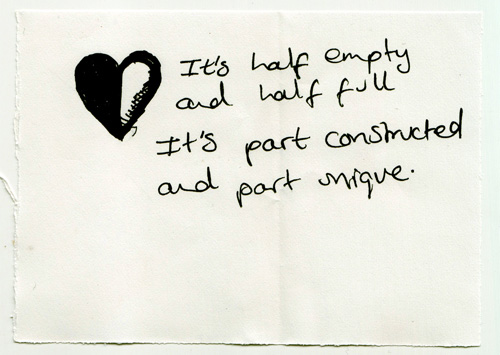 It's half empty
and half full
It's part constructed
and part unique.